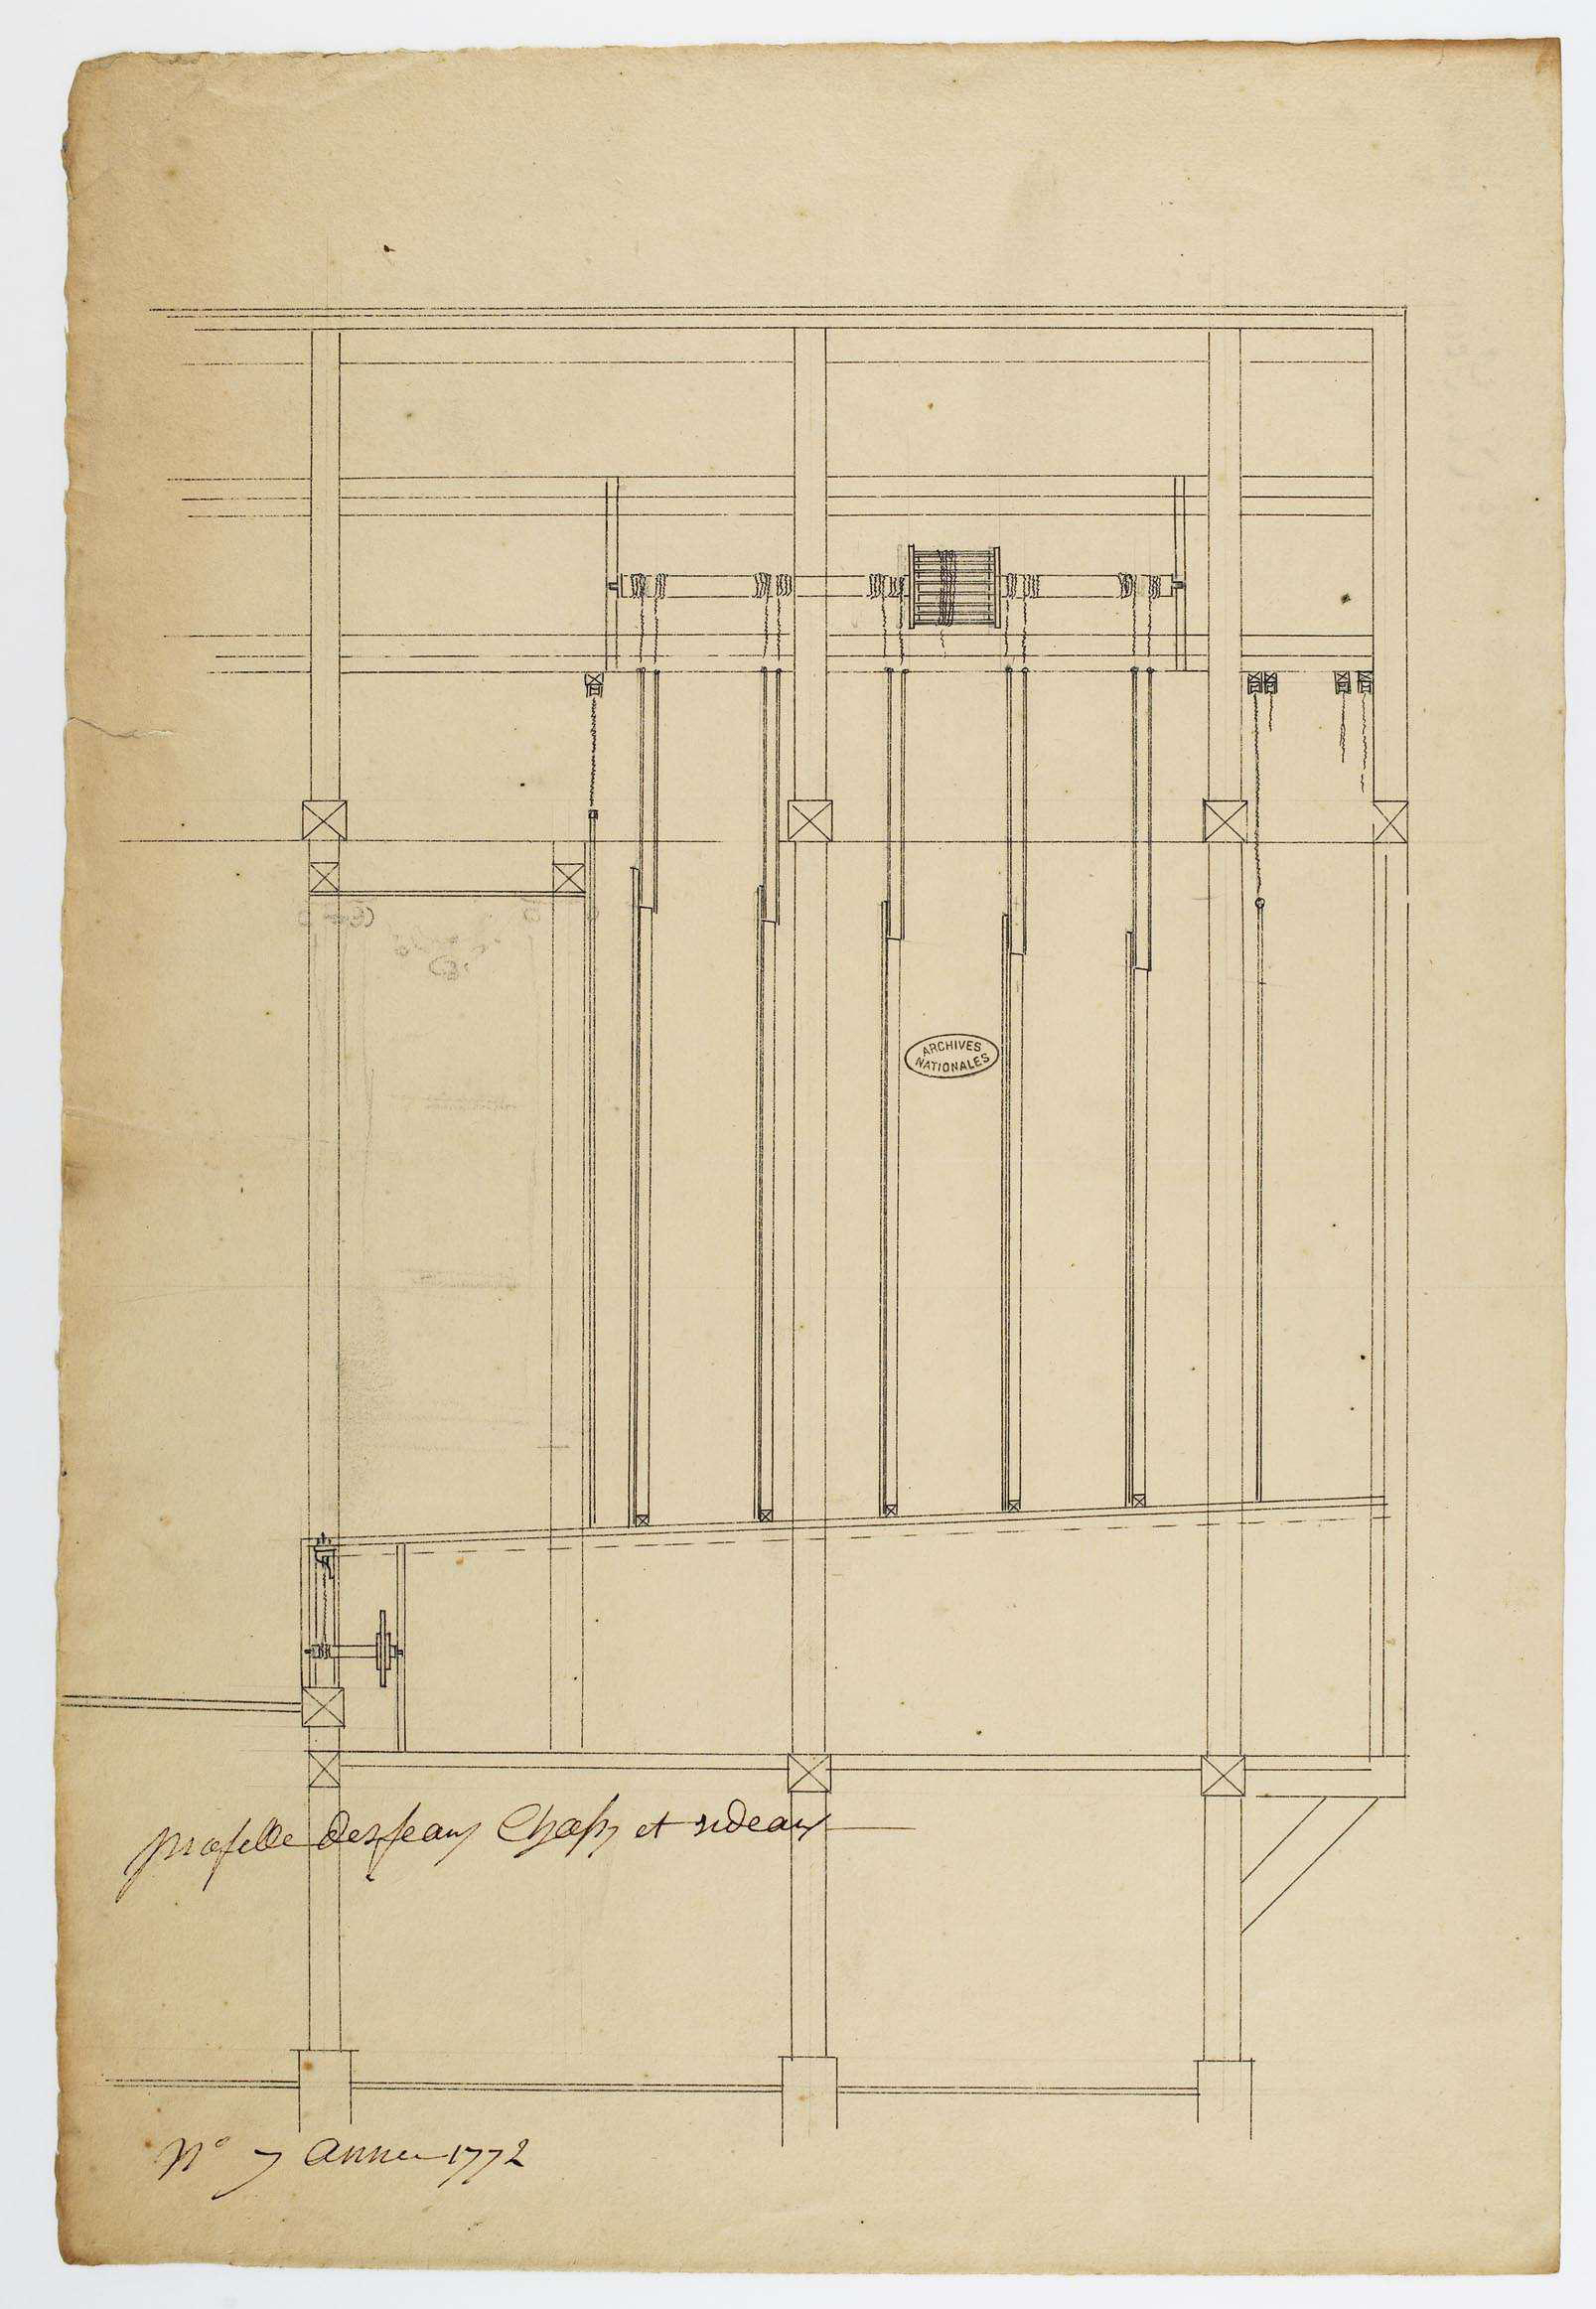 ARCHIVES
NATIONALES
profille des feaux Chasis et rideaux
N° 7 annee 1772